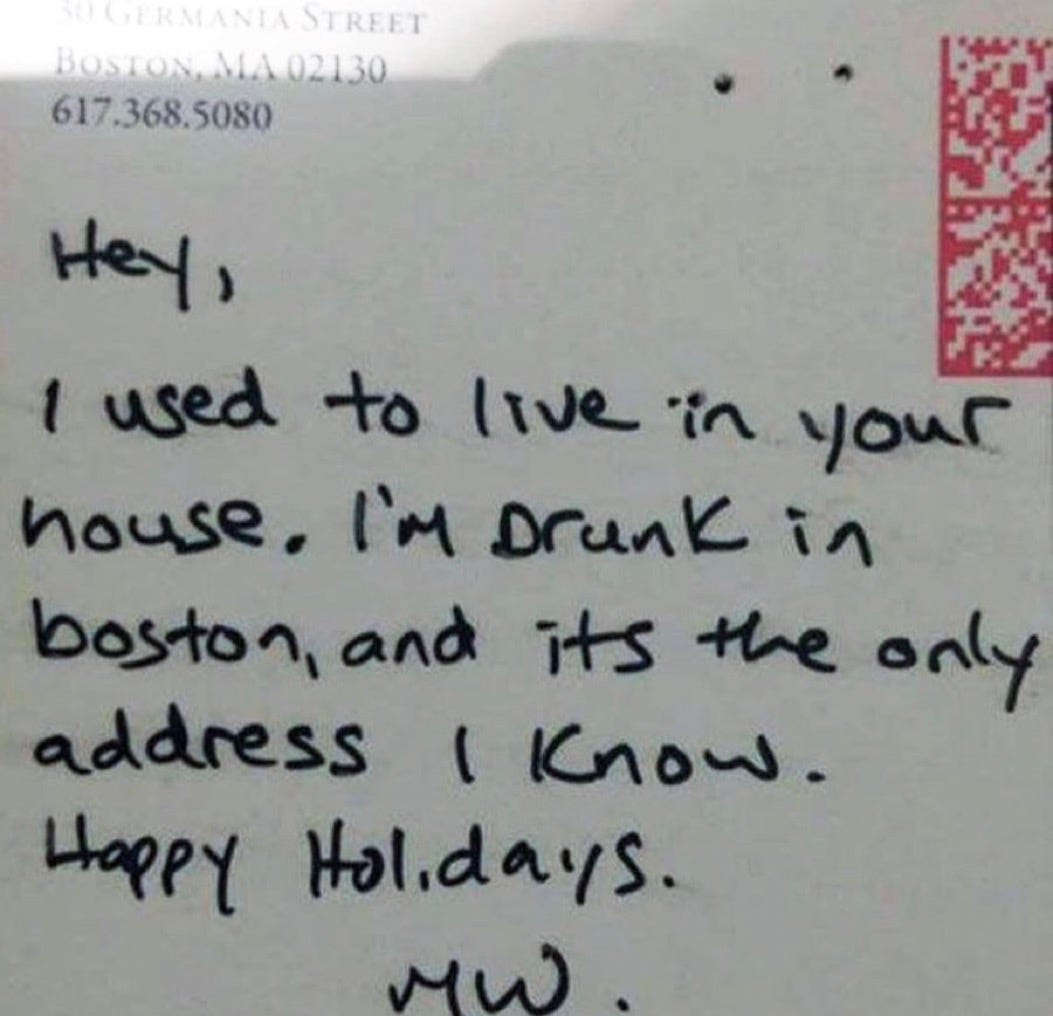 30 GERMANIA STREET
BOSTON, MA 02130
617.368.5080
Hey,
I used to live in your
house. I'm Drunk in
boston, and its the only
address I Know.
Happy Holidays.
MW.